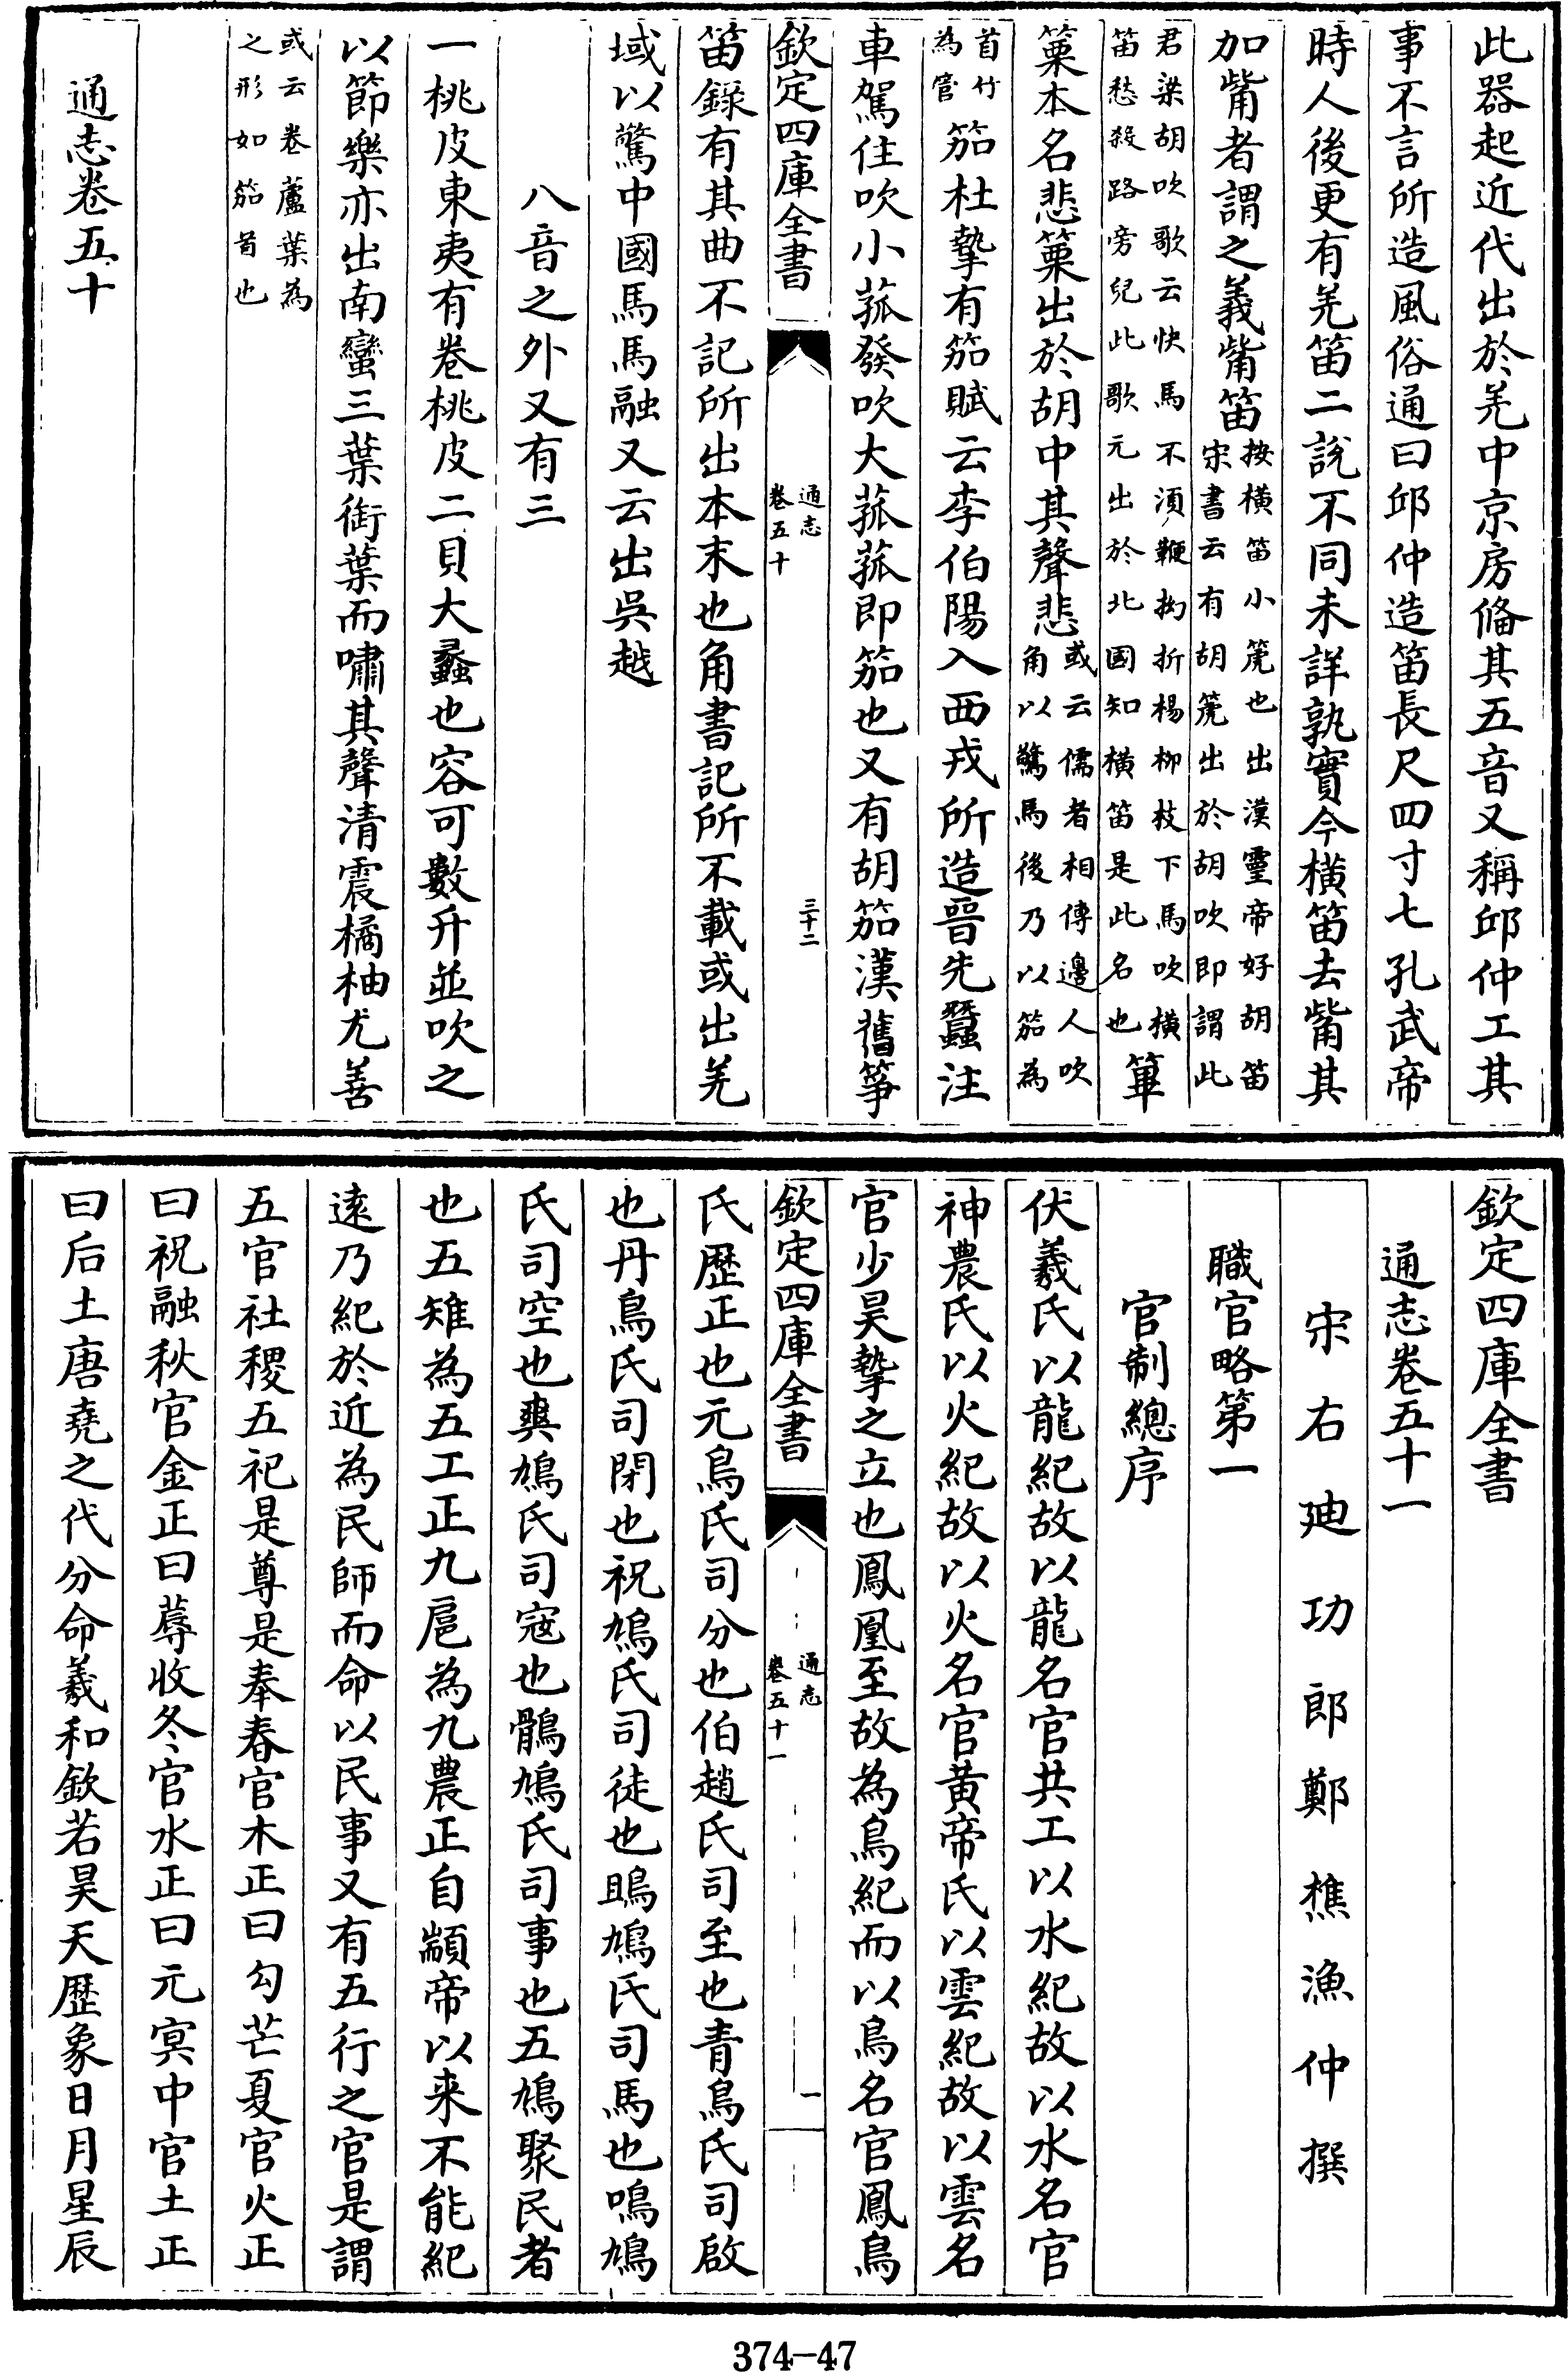 此器起近代出於羌中京房俻其五音又稱邱仲工其
事不言所造風俗通曰邱仲造笛長尺四寸七孔武帝
時人後更有羌笛二說不同未詳孰實今横笛去觜其
加觜者謂之義觜笛按横笛小箎也出漢靈帝好胡笛
宋書云有胡箎出於胡吹即謂此
君梁胡吹歌云快馬不湏鞭拗折楊柳枝下馬吹横
笛愁殺路旁兒此歌元出於北國知横笛是此名也篳
篥本名悲篥出於胡中其聲悲或云儒者相傳邊人吹
角以驚馬後乃以笳為
首竹
為管笳杜摯有笳賦云李伯陽入西戎所造晉先蠶注
車駕住吹小菰發吹大菰菰即笳也又有胡笳漢舊筝
欽定四庫全書
通志
卷五十
三十二
笛錄有其曲不記所出本末也角書記所不載或出羌
域以驚中國馬馬融又云出吳越
八音之外又有三
一桃皮東夷有卷桃皮二貝大蠡也容可數升並吹之
以節樂亦出南蠻三葉銜葉而嘯其聲清震橘柚尤善
或云卷蘆葉為
之形如笳首也
通志卷五十
欽定四庫全書
通志卷五十一
宋右廸功郎鄭樵漁仲撰
職官略第一
官制總序
伏羲氏以龍紀故以龍名官共工以水紀故以水名官
神農氏以火紀故以火名官黄帝氏以雲紀故以雲名
官少昊摯之立也鳳凰至故為鳥紀而以鳥名官鳳鳥
欽定四庫全書
通志
卷五十一
一
氏歴正也元鳥氏司分也伯趙氏司至也青鳥氏司啟
也丹鳥氏司閉也祝鳩氏司徒也鴡鳩氏司馬也鳲鳩
氏司空也爽鳩氏司寇也鶻鳩氏司事也五鳩聚民者
也五雉為五工正九扈為九農正自顓帝以来不能紀
逺乃紀於近為民師而命以民事又有五行之官是謂
五官社稷五祀是尊是奉春官木正曰勾芒夏官火正
曰祝融秋官金正曰蓐收冬官水正曰元冥中官土正
曰后土唐堯之代分命羲和欽若昊天歴象日月星辰
374-47